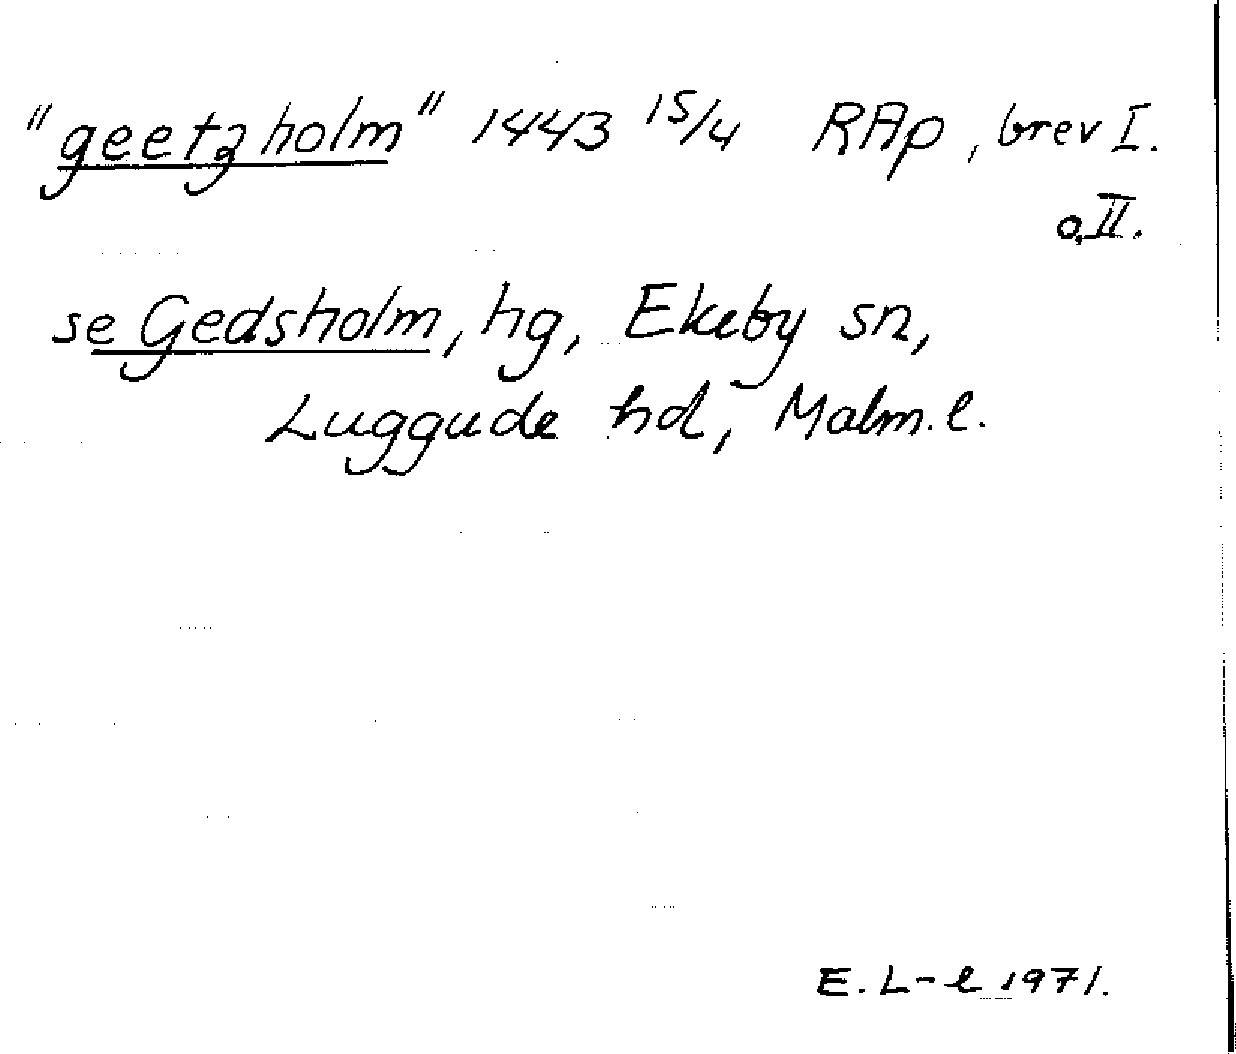 "geetzholm" 1443 15/4 RAp, brev I.
o. II.
se Gedsholm, hg, Ekeby sn,
Luggude hd, Malm. l.
E. L-l 1971.